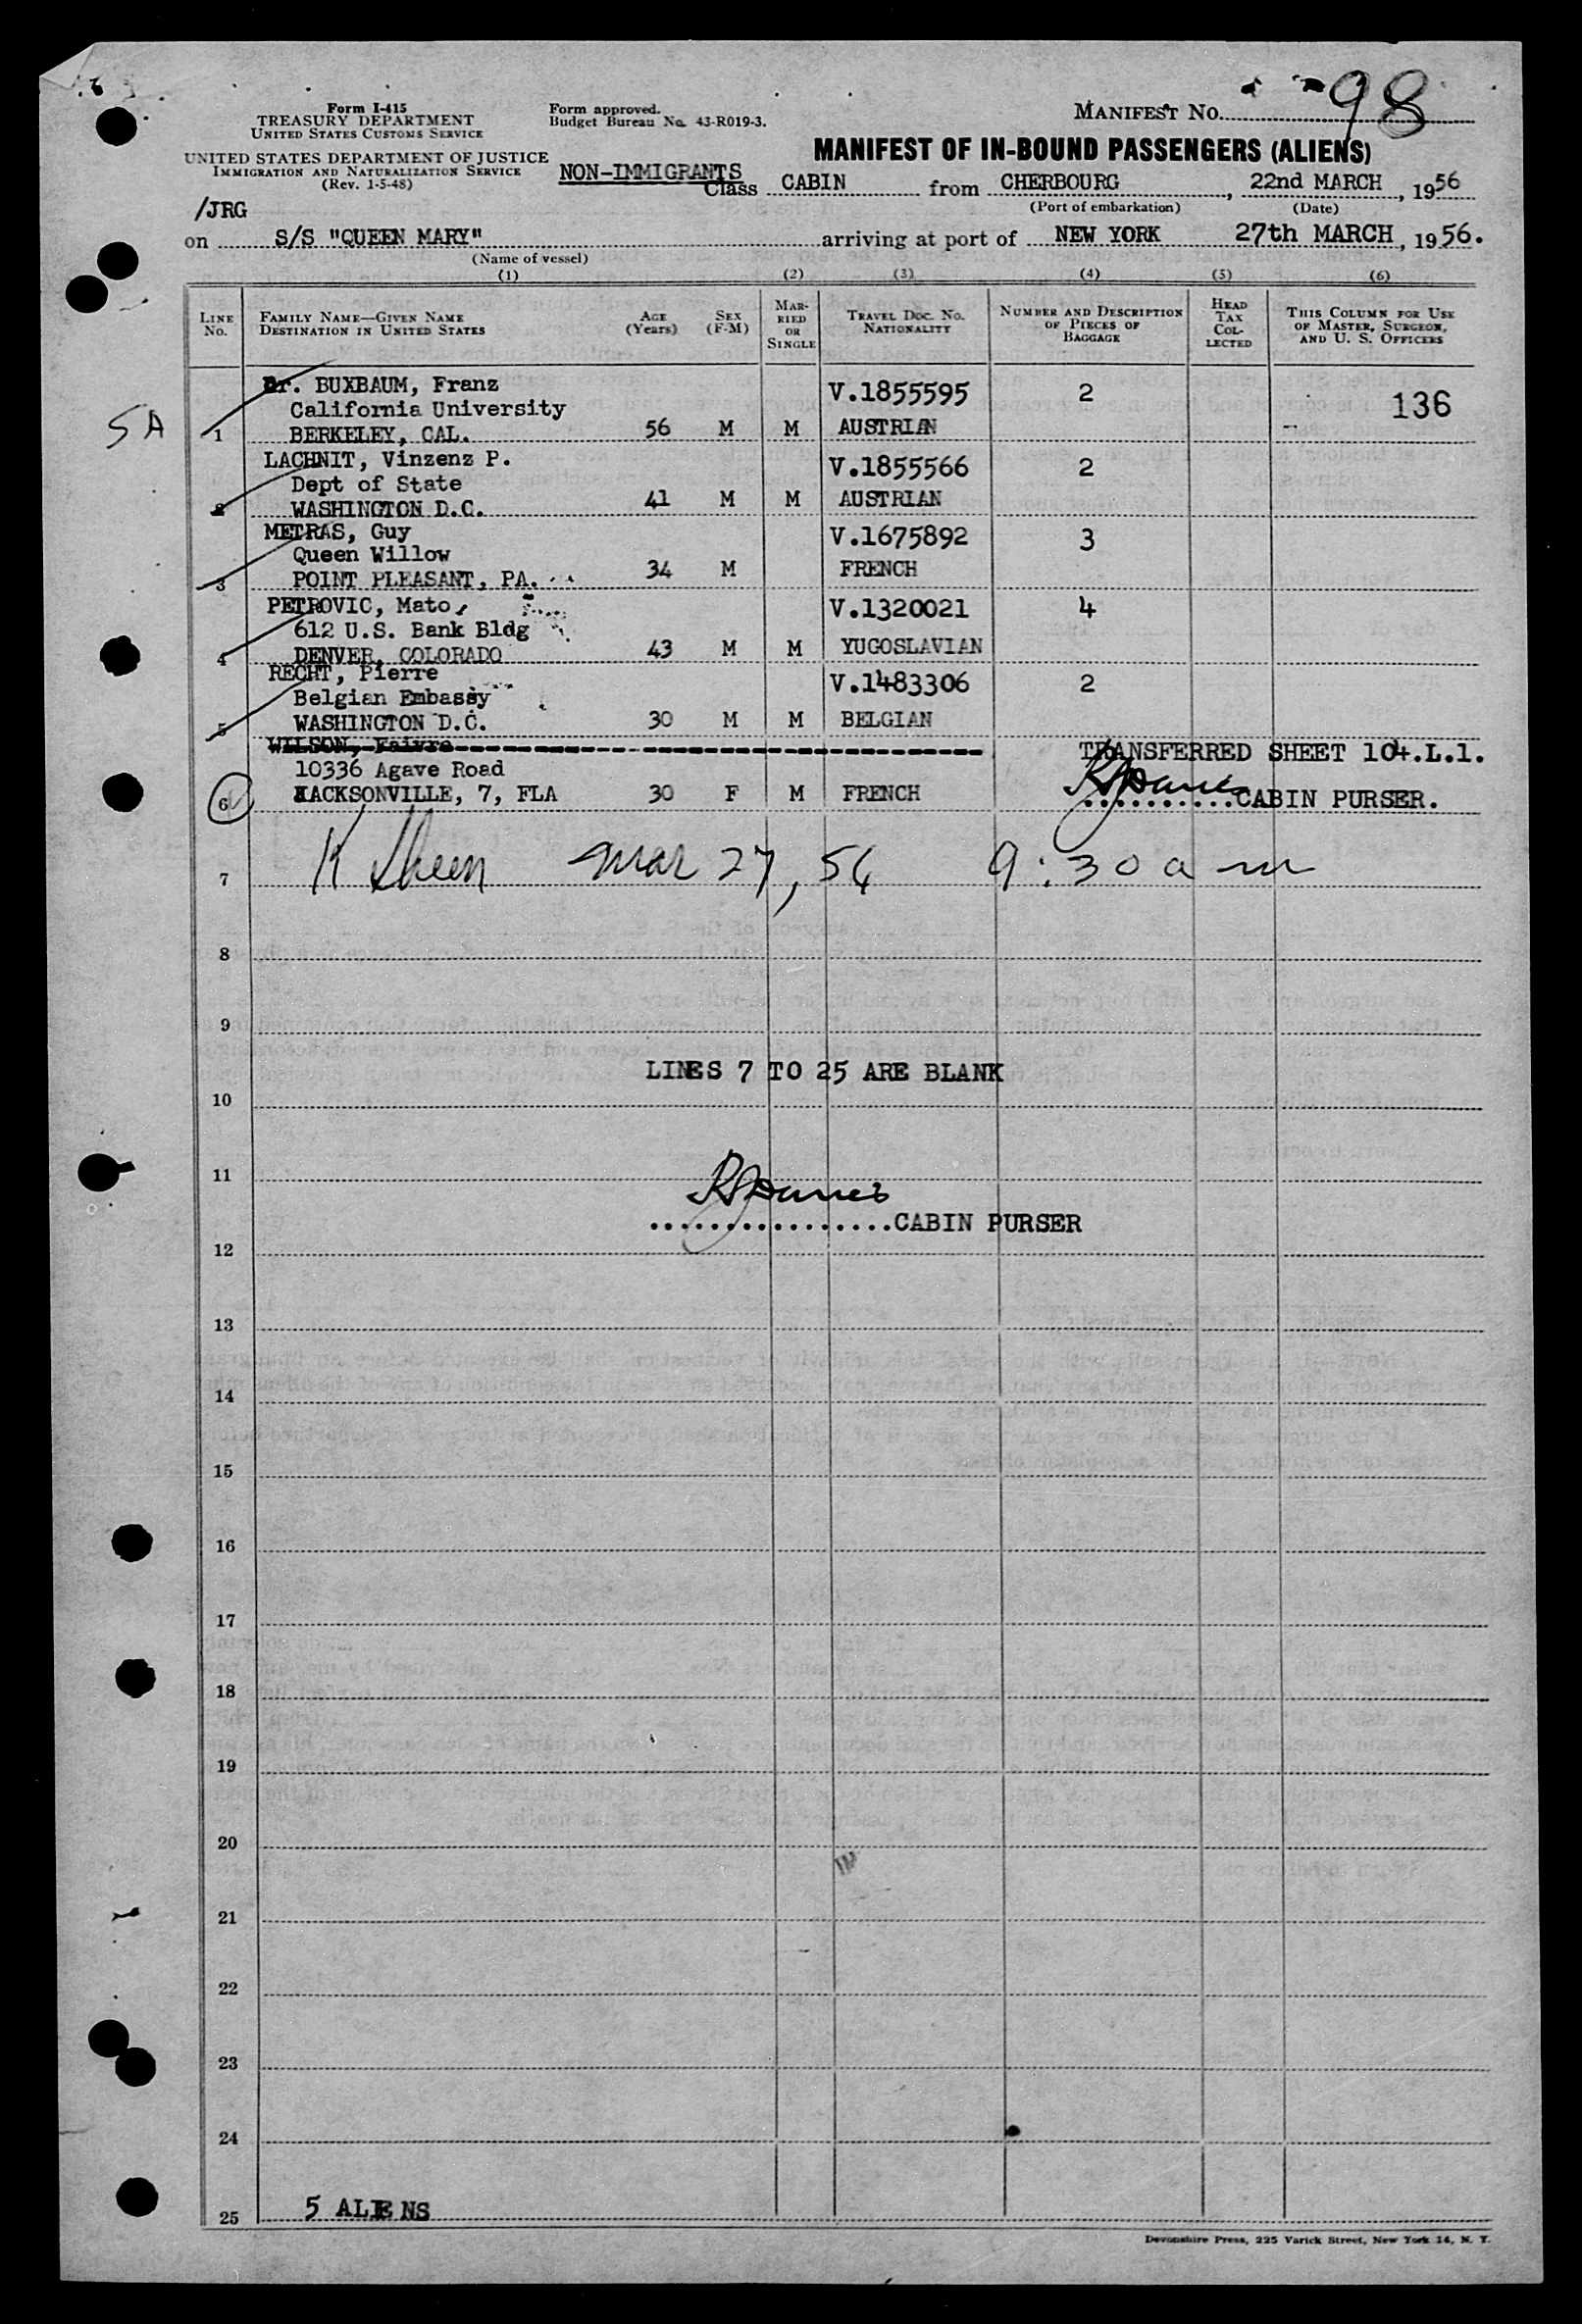 Form I-415
TREASURY DEPARTMENT
UNITED STATES CUSTOMS SERVICE
Form approved.
Budget Bureau No. 43-R019-3.
MANIFEST NO. 98
UNITED STATES DEPARTMENT OF JUSTICE
IMMIGRATION AND NATURALIZATION SERVICE
(Rev. 1-5-48)
MANIFEST OF IN-BOUND PASSENGERS (ALIENS)
NON-IMMIGRANTS
Class CABIN from CHERBOURG, 22nd MARCH, 1956
(Port of embarkation) (Date)
/JRG
on S/S "QUEEN MARY" arriving at port of NEW YORK 27th MARCH, 1956.
(Name of vessel)
(1) (2) (3) (4) (5) (6)
LINE NO. FAMILY NAME—GIVEN NAME DESTINATION IN UNITED STATES AGE (Years) SEX (F-M) MARRIED OR SINGLE TRAVEL DOC. NO. NATIONALITY NUMBER AND DESCRIPTION OF PIECES OF BAGGAGE HEAD TAX COLLECTED THIS COLUMN FOR USE OF MASTER, SURGEON, AND U. S. OFFICERS
Dr. BUXBAUM, Franz V.1855595 2 136
California University
5A 1 BERKELEY, CAL. 56 M M AUSTRIAN
LACHNIT, Vinzenz P. V.1855566 2
Dept of State
2 WASHINGTON D.C. 41 M M AUSTRIAN
METRAS, Guy V.1675892 3
Queen Willow
3 POINT PLEASANT, PA. 34 M FRENCH
PETROVIC, Mato V.1320021 4
612 U.S. Bank Bldg
4 DENVER, COLORADO 43 M M YUGOSLAVIAN
RECHT, Pierre V.1483306 2
Belgian Embassy
5 WASHINGTON D.C. 30 M M BELGIAN
WILSON, Faivre TRANSFERRED SHEET 104.L.1.
10336 Agave Road
6 JACKSONVILLE, 7, FLA 30 F M FRENCH CABIN PURSER.
7 K Sheen Mar 27, 56 9:30 a m
8
9
LINES 7 TO 25 ARE BLANK
10
11
CABIN PURSER
12
13
14
15
16
17
18
19
20
21
22
23
24
25 5 ALIENS
Devonshire Press, 225 Varick Street, New York 14, N. Y.